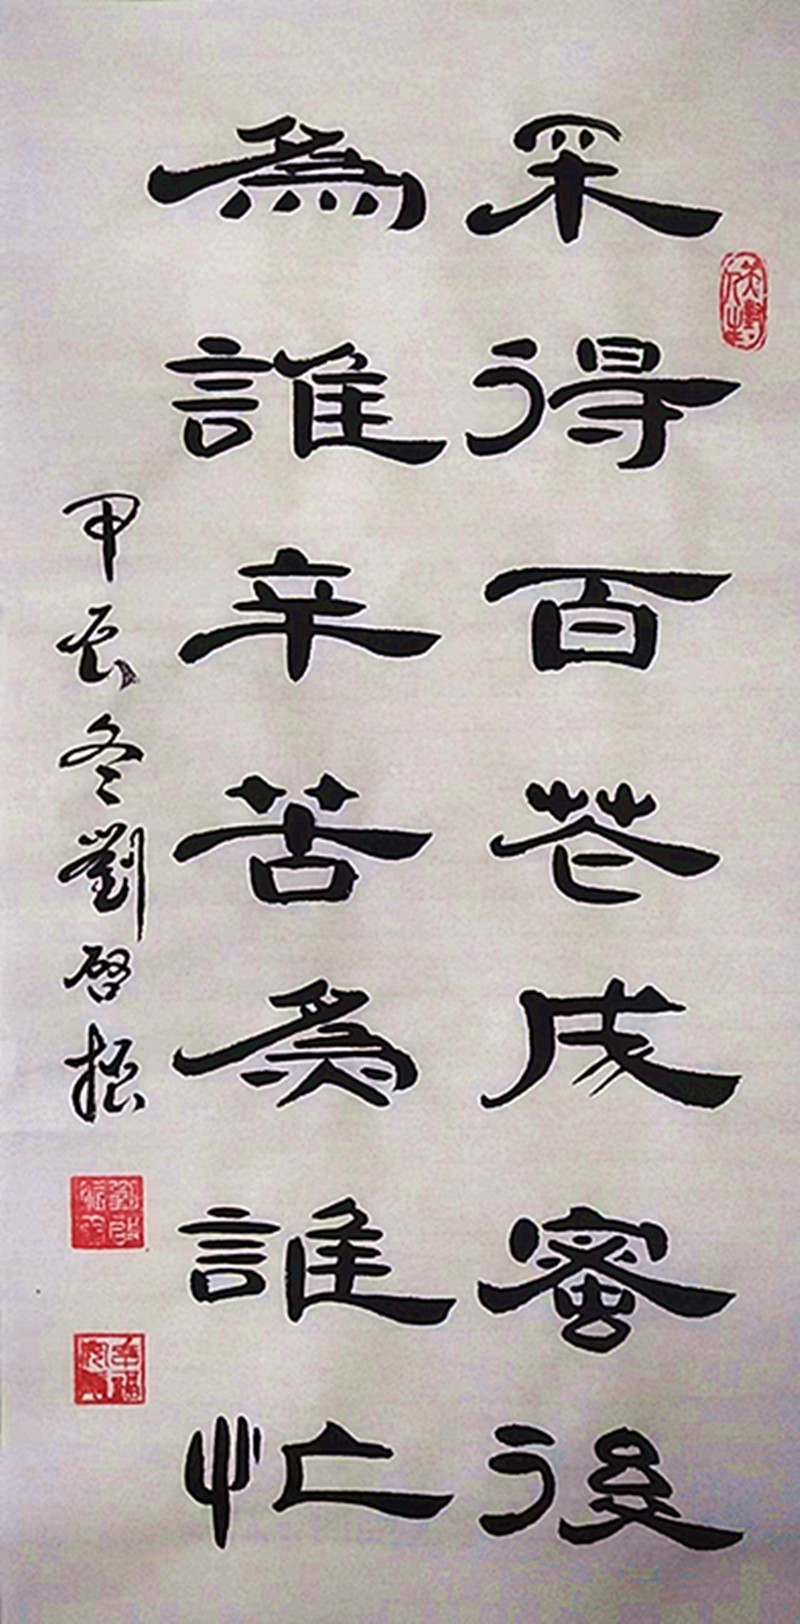 采得百花成蜜後
為誰辛苦為誰忙
甲辰冬劉啓振